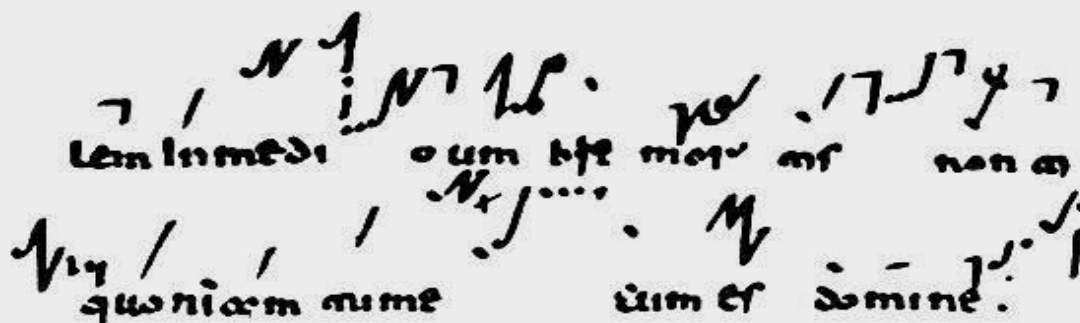 lem in medi o um bre mor tis non ti
quoniam tu me cum es domine.